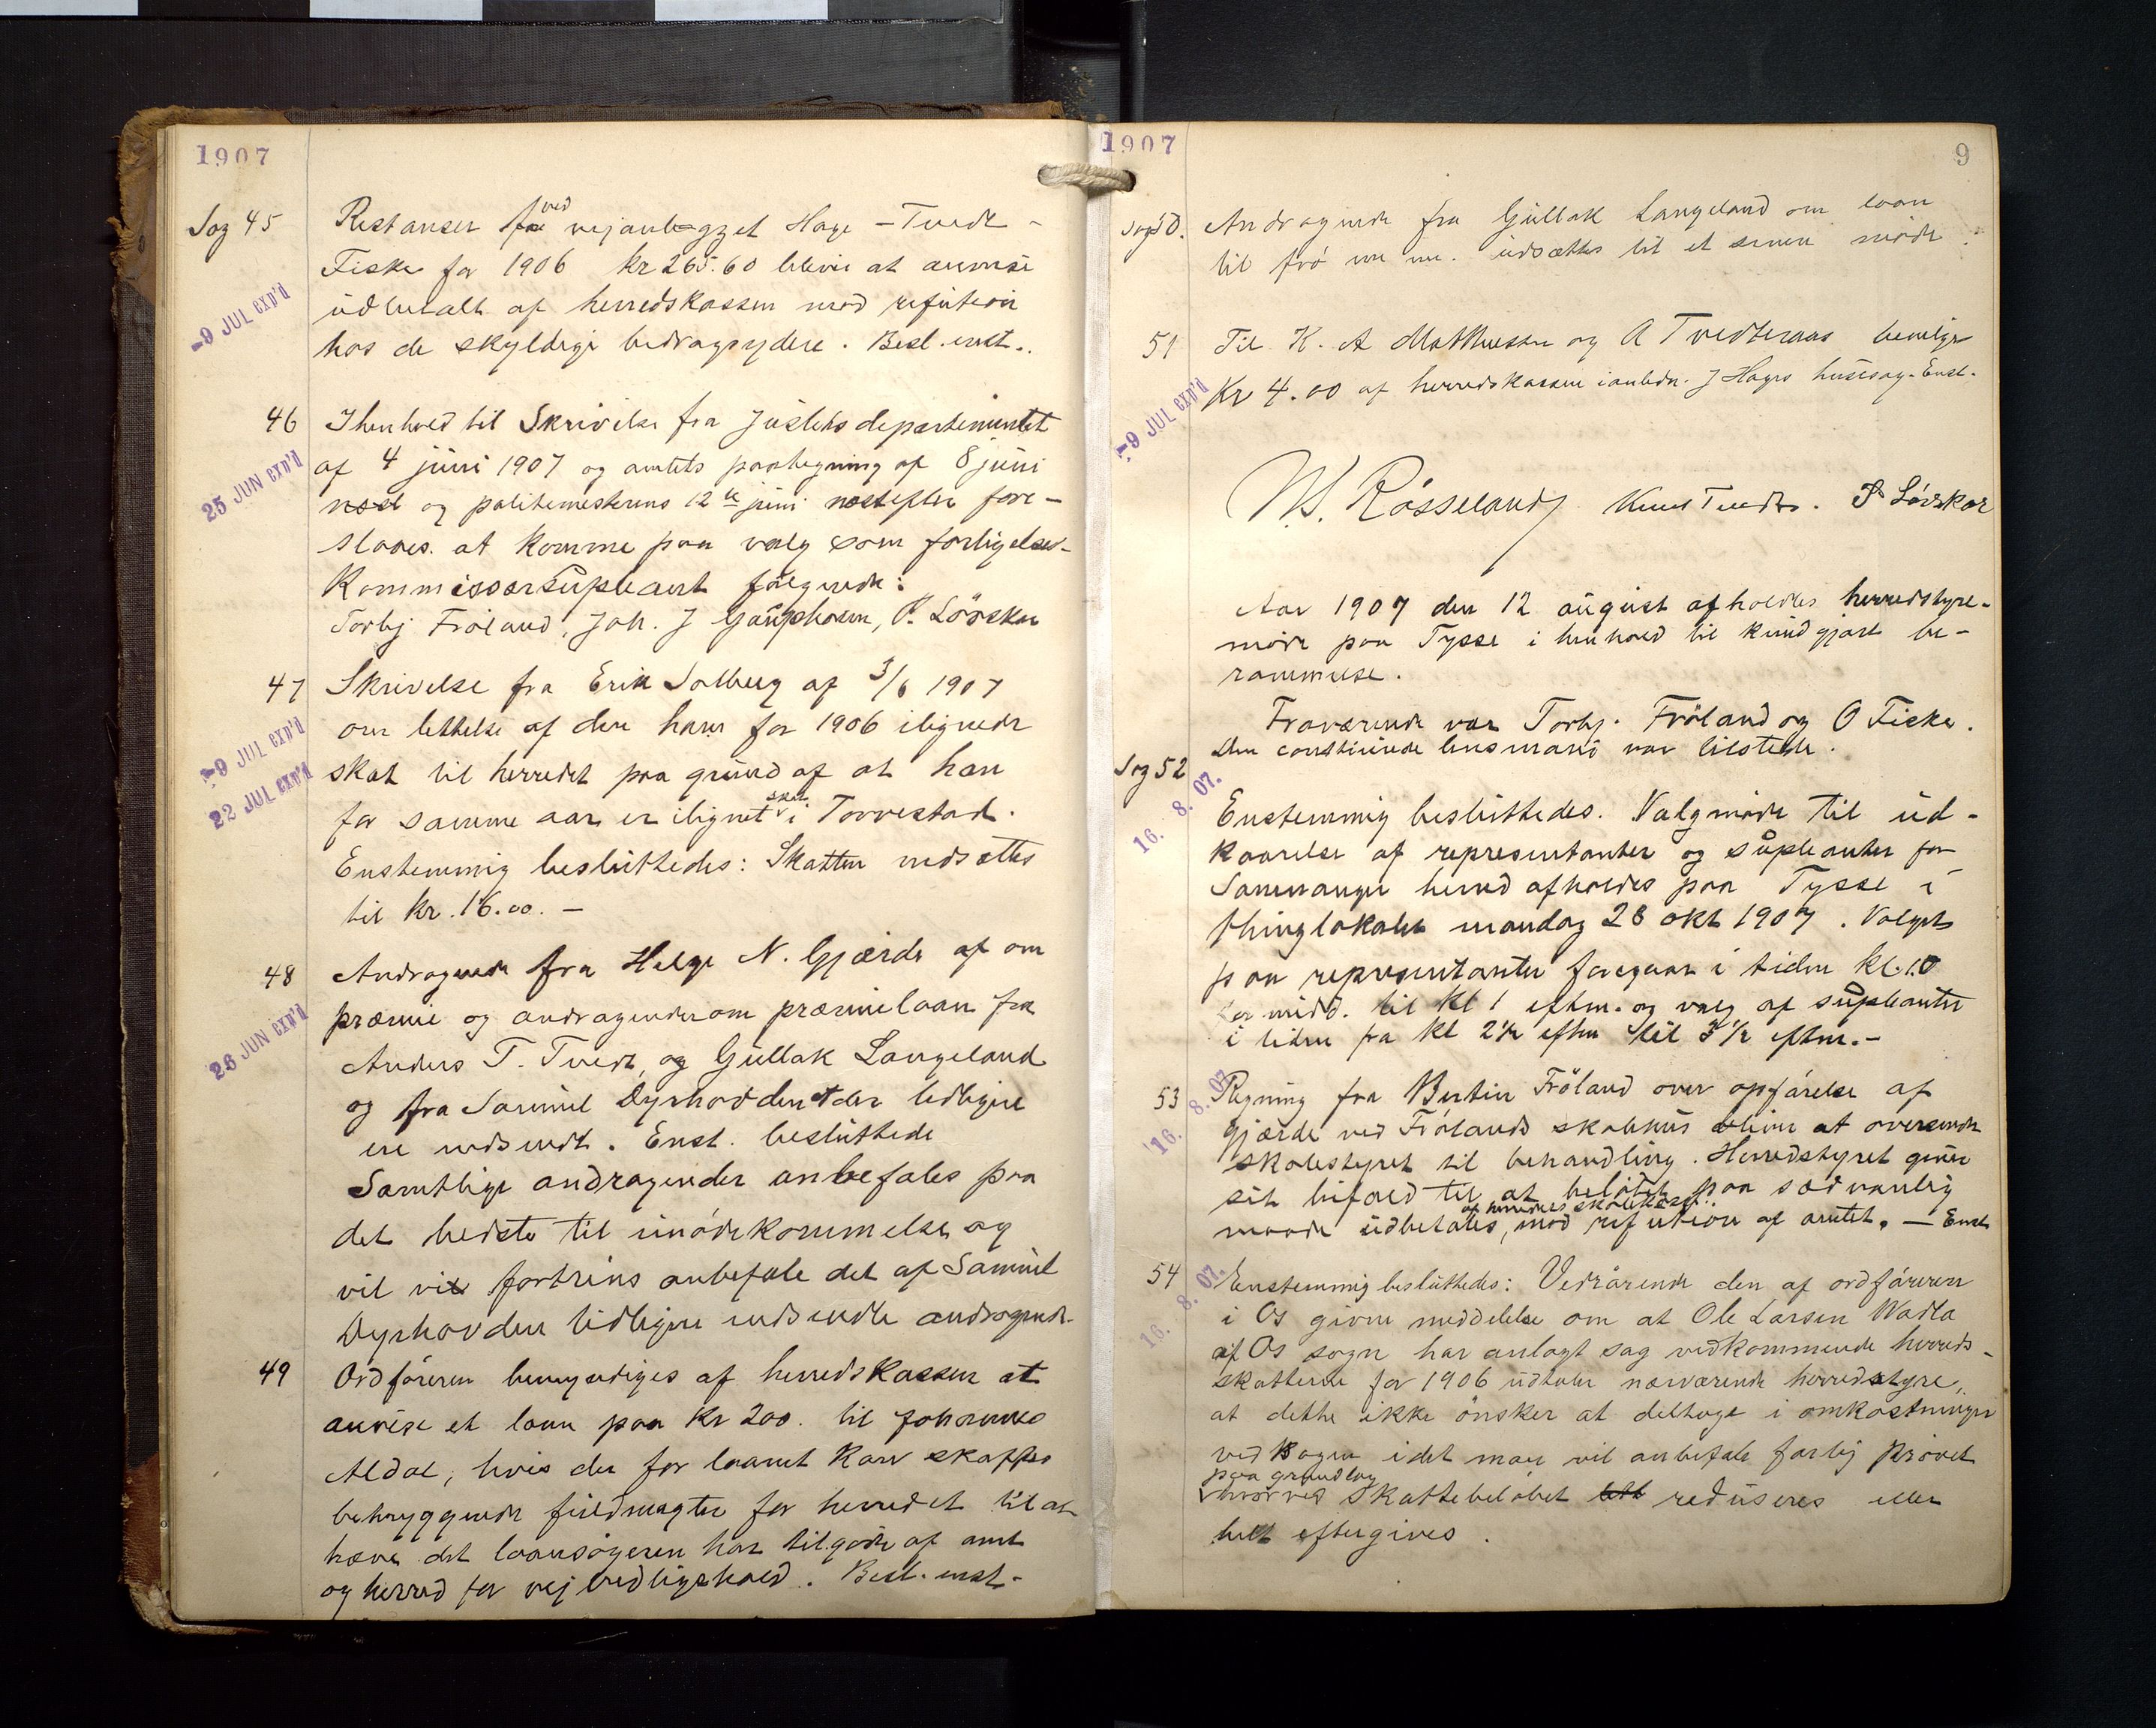 1907
Sag 45
Restanser ved vejanlægget Hage - Tvedt -
Fiske for 1906 kr 265.60 blever at anvise
-9 JUL EXP'D
udbetalt af herredskassen mod refution
hos de skyldige bedragsydere. Besl. enst.
46
I henhold til Skrivelse fra Justitsdepartementet
af 4 juni 1907 og amtets paategning af 8 juni
25 JUN EXP'D
næst og politemesterens 12te juni næstefter fore-
slaaes at komme paa valg som forligelses-
Kommissærsupleant følgende:
Torbj Frøland, Joh. J Gaupholm, P. Løvskar
47
Skrivelse fra Erik Solberg af 3/6 1907
om lettelse af den ham for 1906 ilignede
-9 JUL EXP'D
skat til herredet paa grund af at han
22 JUL EXP'D
for samme aar er ilignet skat i Torvestad.
Enstemmig besluttedes: Skatten nedsættes
til kr. 16.00. -
48
Andragende fra Helge N. Gjærde af om
præmie og andragender om præmielaan fra
26 JUN EXP'D
Anders T. Tvedt, og Gullak Langeland
og fra Samuel Dyrhovden der tidligere
ere indsendt. Enst. besluttede
Samtlige andragender anbefales paa
det bedste til imødekommelse og
vil vil fortrins anbefale det af Samuel
Dyrhovden tidligere indsendte andragende.
49
Ordføreren bemyndiges af herredskassen at
anvise et laan paa Kr 200. til Johannes
Aldal, hvis der for laanet kan skaffes
betryggende fuldmagter for herredet til at
hæve det laansøgeren har tilgode af amt
og herred for vejvedligehold. Besl. enst.
1907
9
Sag 50.
Andragende fra Gullak Langeland om laan
til frø m.m. udsættes til et senere møde.
51
Til K. A Mathiesen og A Tvedteraas bevilges
-9 JUL EXP'D
Kr 4.00 af herredskassen i anledn. J Hages husesag. Enst.
N. Røsseland Knut Tvedt. P Løvskar
Aar 1907 den 12 august afholdes herredstyre-
møde paa Tysse i henhold til kundgjort be-
rammelse.
Fraværende var Torbj. Frøland og O Fiske.
Den constituerede lensmand var tilstede.
Sag 52
16. 8. 07.
Enstemmig besluttedes. Valgmøde til ud-
kaarelse af representanter og supleanter for
Samnanger herred afholdes paa Tysse i
thinglokalet mandag 28 okt 1907. Valget
paa representanter foregaar i tiden kl. 10
formidd. til kl 1 eftm. og valg af supleanter
i tiden fra kl 2½ eftm til 3½ eftm. -
53
16. 8. 07
Regning fra Bertin Frøland over opførelse af
gjærde ved Frølands skolehus blive at oversende
skolestyret til behandling. Herredstyret giver
sit bifald til at beløbet paa sædvanlig
af herredets skolekasse
maade udbetales, mod refution af amtet. - Enst
54
16. 8. 07.
Enstemmig besluttedes: Vedrørende den af ordføreren
i Os given meddelelse om at Ole Larsen Wadla
af Os sogn har anlagt sag vedkommende herreds-
skatterne for 1906 udtaler nærværende herredstyre,
at dette ikke ønsker at deltage i omkostninger
ved sagen idet man vil anbefale forlig prøvet
paa grundlag
hvorved skattebeløbet reduseres eller
helt eftergives.